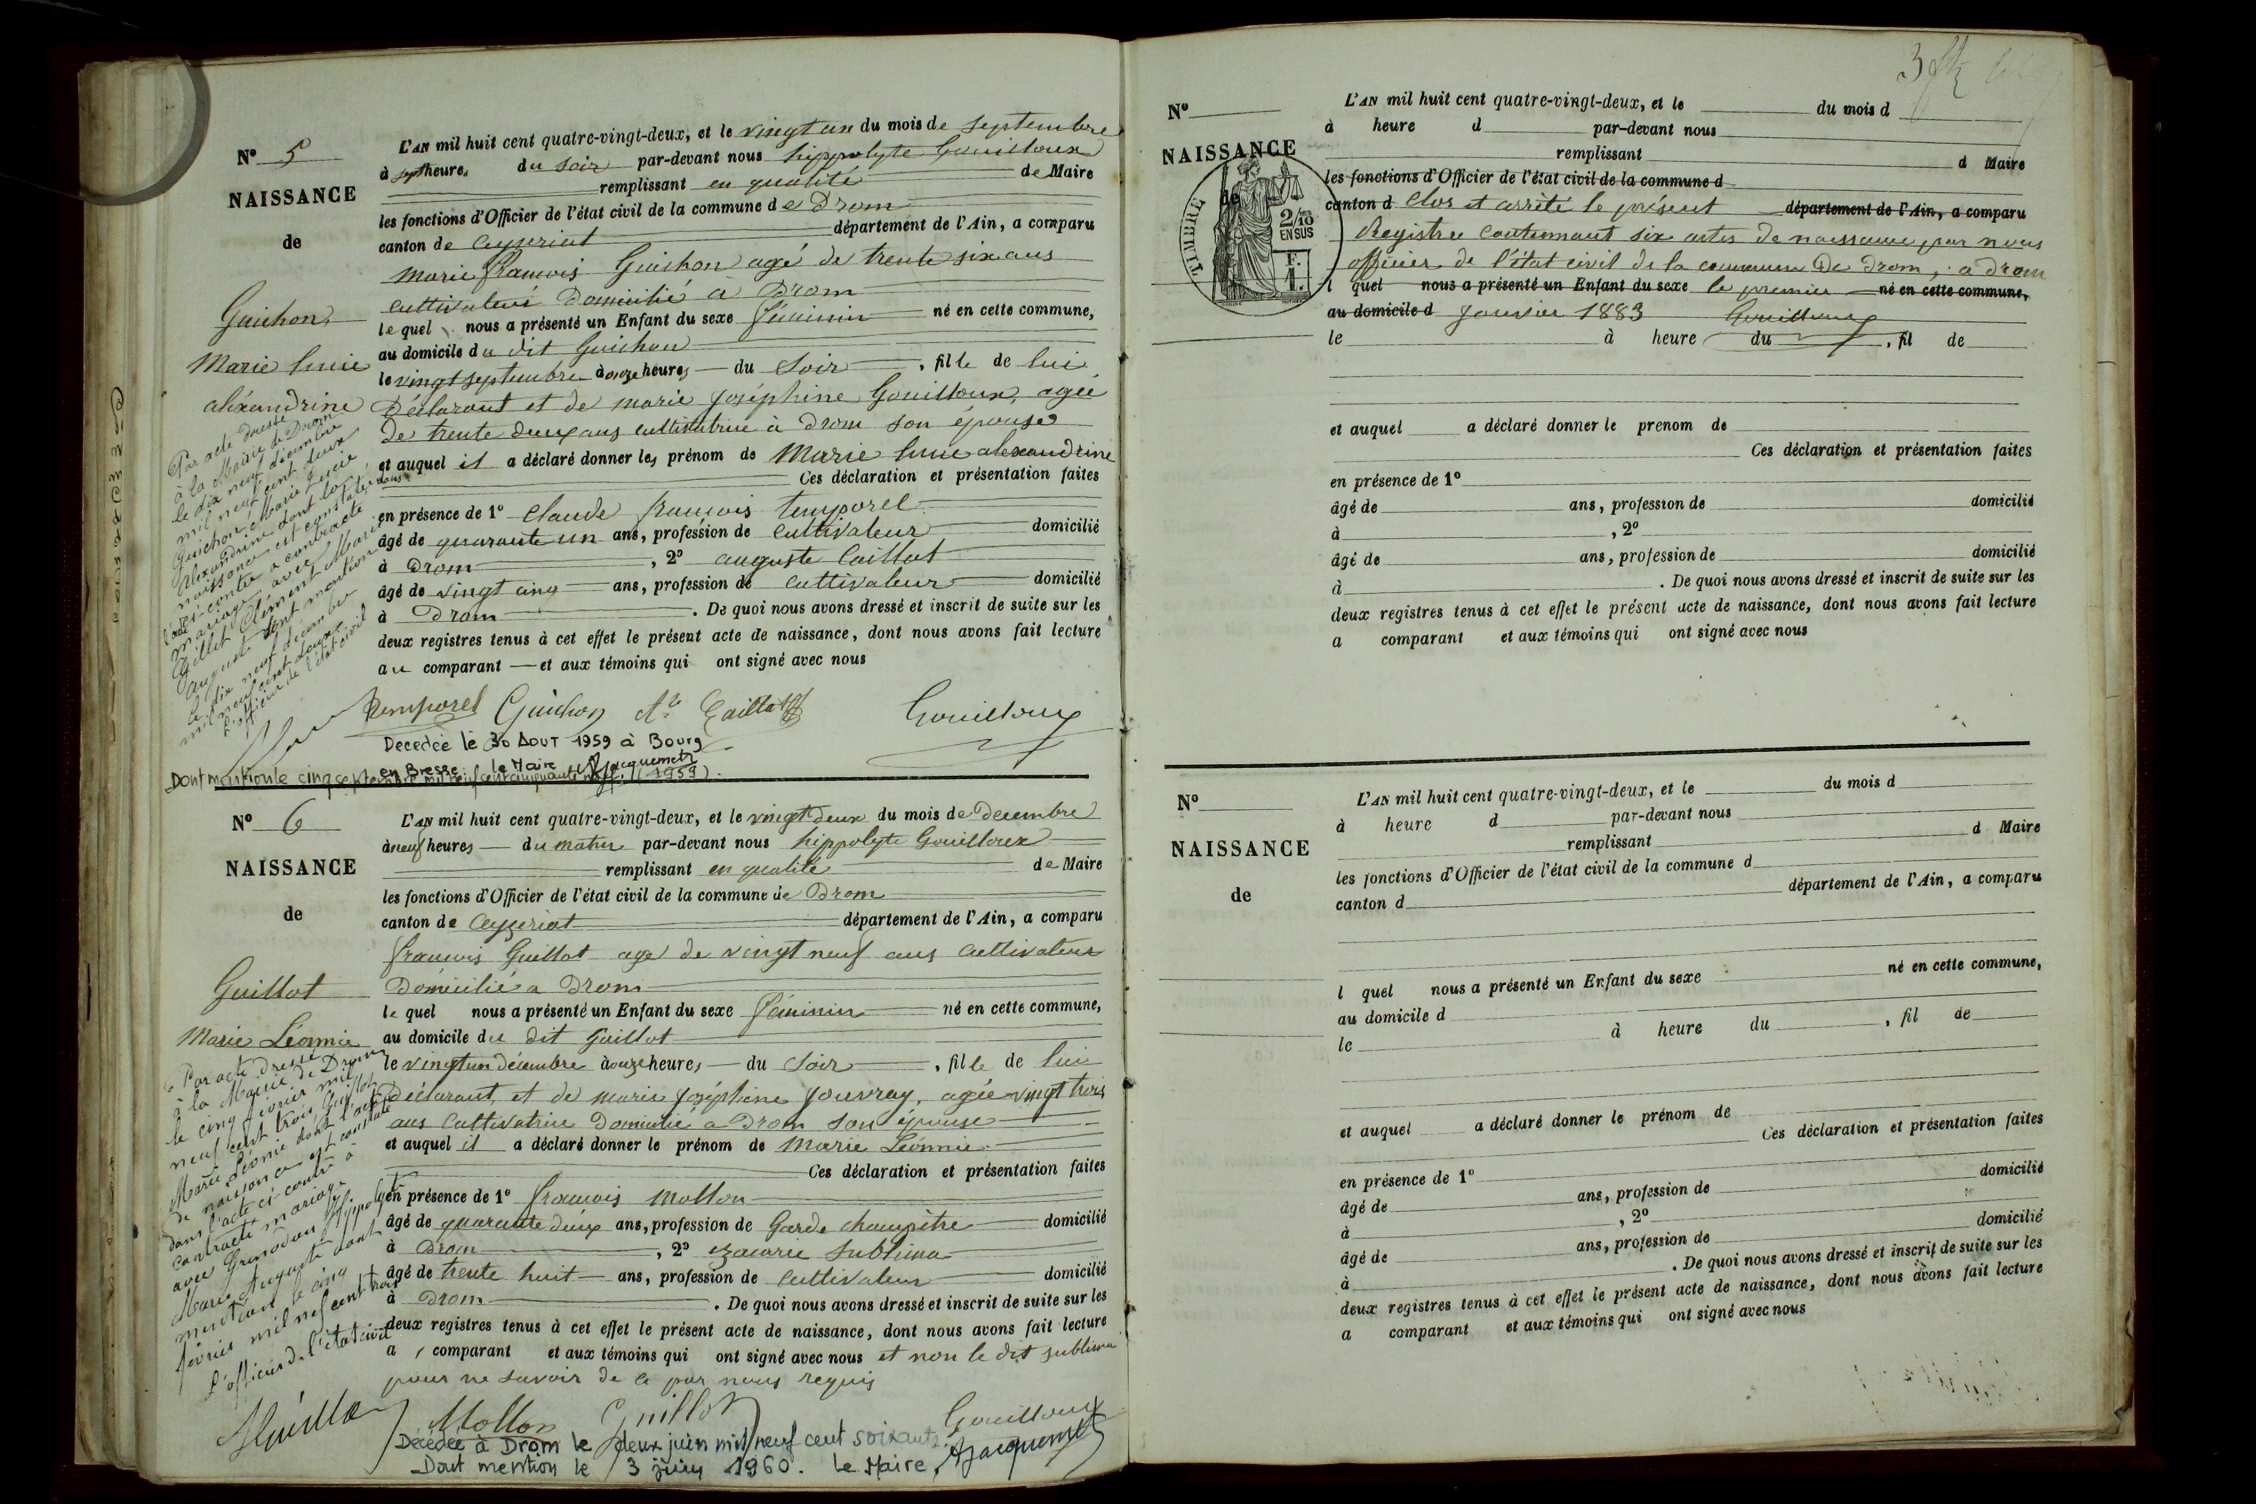 N° 5
NAISSANCE
de
Guichon
Marie Lucie
aléxandrine
Par acte dressé
à la Mairie de Drom
le dix neuf décembre
mil neuf cent deux
Guichon Marie Lucie
Alexandrine dont la
naissance est constatée dans
l'acte ci contre a contracté
mariage avec
Clément Marie
Auguste dont mention
le dix neuf décembre
mil neuf cent deux
L'officier de l'état civil
L'AN mil huit cent quatre-vingt-deux, et le vingt un du mois de septembre
à sept heures du soir par-devant nous hippolyte Gouilloux
remplissant en qualité de Maire
les fonctions d'Officier de l'état civil de la commune de Drom
canton de Ceyzeriat département de l'Ain, a comparu
marie francois Guichon agé de trente six ans
cultivateur domicilié a Drom
le quel nous a présenté un Enfant du sexe féminin né en cette commune,
au domicile du dit Guichon
le vingt septembre à onze heures du soir, fille de lui
Déclarant et de marie joséphine Gouilloux, agée
de trente deux ans cultivatrice à Drom son épouse
et auquel il a déclaré donner les prénom de Marie lucie alexandrine
Ces déclaration et présentation faites
en présence de 1° claude francois temporel
âgé de quarante un ans, profession de cultivateur domicilié
à Drom, 2° auguste Caillat
âgé de vingt cinq ans, profession de cultivateur domicilié
à Drom. De quoi nous avons dressé et inscrit de suite sur les
deux registres tenus à cet effet le présent acte de naissance, dont nous avons fait lecture
au comparant et aux témoins qui ont signé avec nous
Temporel Guichon Caillat Gouilloux
Decedée le 30 AOUT 1959 à Bourg
en Bresse. le Maire Jacquemet
Dont mention le cinq septembre mil neuf cent cinquante neuf. (1959).
N° 6
NAISSANCE
de
Guillot
Marie Léonnie
Par acte dressé
à la Mairie de Drom
le cinq février mil
neuf cent trois, Guillot
Marie Léonie dont l'acte
de naissance est constaté
dans l'acte ci contre a
contracté mariage
avec Hippolyte
Marie Auguste dont
mention le cinq
février mil neuf cent trois
L'officier de l'état civil
L'AN mil huit cent quatre-vingt-deux, et le vingt deux du mois de Decembre
à neuf heures du matin par-devant nous hippolyte Gouilloux
remplissant en qualité de Maire
les fonctions d'Officier de l'état civil de la commune de Drom
canton de Ceyzeriat département de l'Ain, a comparu
francois Guillot age de vingt neuf ans cultivateur
Domicilié a Drom
le quel nous a présenté un Enfant du sexe féminin né en cette commune,
au domicile du dit Guillot
le vingt un décembre à onze heures du soir, fille de lui
déclarant, et de marie joséphine Jouvray, agée vingt trois
ans cultivatrice Domicilié a Drom son épouse
et auquel il a déclaré donner le prénom de Marie Léonnie
Ces déclaration et présentation faites
en présence de 1° francois Mollon
âgé de quarante deux ans, profession de Garde champêtre domicilié
à Drom, 2° Sublima
âgé de trente huit ans, profession de cultivateur domicilié
à Drom. De quoi nous avons dressé et inscrit de suite sur les
deux registres tenus à cet effet le présent acte de naissance, dont nous avons fait lecture
a comparant et aux témoins qui ont signé avec nous et non le dit sublima
pour ne savoir de ce par nous requis
Mollon Guillot Gouilloux
Décédée à Drom le deux juin mil neuf cent soixante.
Dont mention le 3 juin 1960. Le Maire, Jacquemet
3
N°
NAISSANCE
de
TIMBRE
2/10
EN SUS
F.
1.
L'AN mil huit cent quatre-vingt-deux, et le du mois d
à heure d par-devant nous
remplissant d Maire
les fonctions d'Officier de l'état civil de la commune d
canton d Clos et arrêté le présent département de l'Ain, a comparu
Registre contenant six actes de naissance par nous
officier de l'état civil de la commune de Drom, a drom
l quel nous a présenté un Enfant du sexe le premier né en cette commune,
au domicile d Janvier 1883 Gouilloux
le à heure du , fil de
et auquel a déclaré donner le prenom de
Ces déclaration et présentation faites
en présence de 1°
âgé de ans, profession de domicilié
à , 2°
âgé de ans, profession de domicilié
à . De quoi nous avons dressé et inscrit de suite sur les
deux registres tenus à cet effet le présent acte de naissance, dont nous avons fait lecture
a comparant et aux témoins qui ont signé avec nous
N°
NAISSANCE
de
L'AN mil huit cent quatre-vingt-deux, et le du mois d
à heure d par-devant nous
remplissant d Maire
les fonctions d'Officier de l'état civil de la commune d
canton d département de l'Ain, a comparu
l quel nous a présenté un Enfant du sexe né en cette commune,
au domicile d
le à heure du , fil de
et auquel a déclaré donner le prénom de
Ces déclaration et présentation faites
en présence de 1°
âgé de ans, profession de domicilié
à , 2°
âgé de ans, profession de domicilié
à . De quoi nous avons dressé et inscrit de suite sur les
deux registres tenus à cet effet le présent acte de naissance, dont nous avons fait lecture
a comparant et aux témoins qui ont signé avec nous